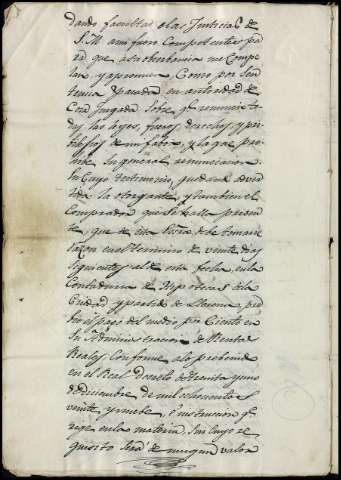 dando facultad a las Justicias de
S. M. a mi fuero Competentes pa
ra que a su observancia me Compe
lan y apremien Como por Sen
tencia pasada en autoridad de
Cosa Juzgada Sobre qe. renuncio to
das las leyes, fueros, derechos, y pri
bilejios de mi fabor, y la que pro
hibe Su general renunciacion.
En Cuyo testimonio, quedando adver
tida la otorgante, y tambien el
Comprador que Se halla presen
te, que de esta Escra. se ha de tomar
razon en el termino de veinte dias
siguientes al de esta fecha en la
Contaduria de Ypotecas de la
Ciudad y partido de Llerena, pre
bio el pago del medio por Ciento en
la Administracion de Rentas
Reales Conforme a lo prebenido
en el Real Decreto de treinta y uno
de Diciembre de mil ochocientos
veinte y nuebe, é instruccion qe.
rige en la materia, Sin Cuyo re
quisito Será de ningun valor